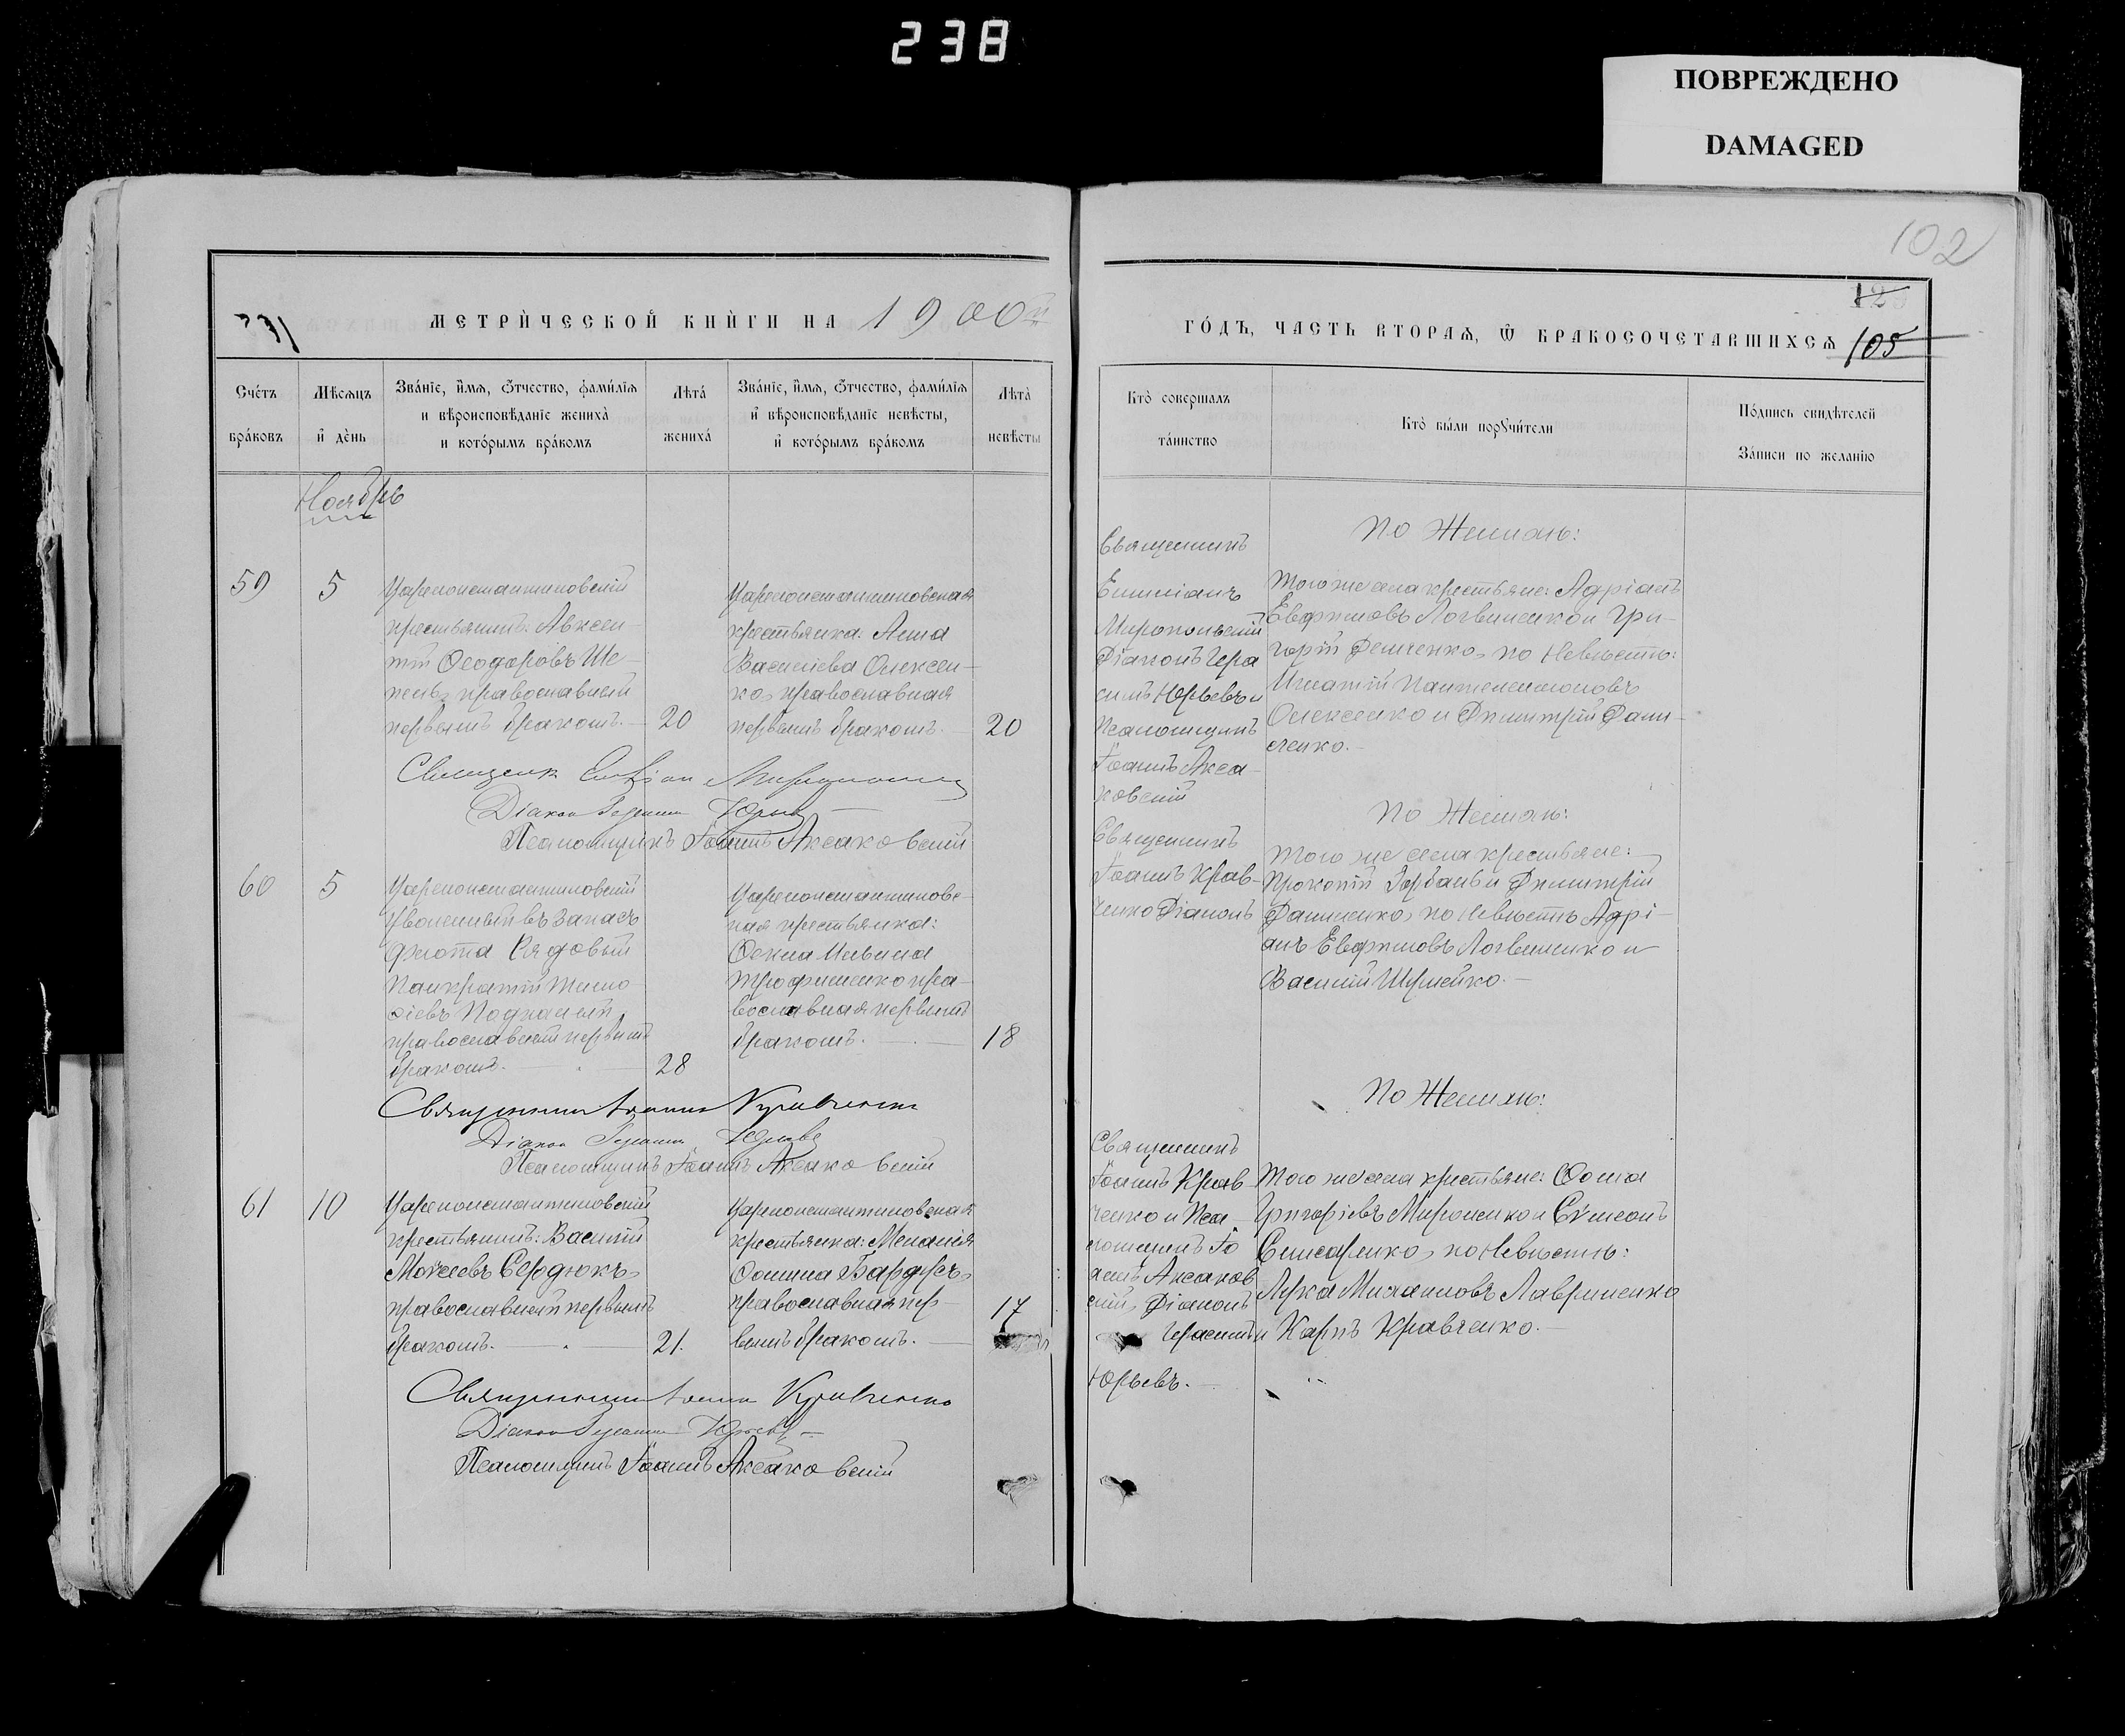 238
ПОВРЕЖДЕНО
DAMAGED
102
105
МЕТРИ́ЧЕСКОЙ КНИ́ГИ НА 1900й
ГО́ДЪ, ЧАСТЬ ВТОРАѦ, Ѿ БРАКОСОЧЕТАВШИХСѦ
Сче́тъ бра́ковъ
Мѣсѧцъ и҆ де́нь
Зва́нїе, и҆́мѧ, ѻ҆́тчество, фами́лїѧ и вѣроисповѣ́данїе жениха̀ и кото́рымъ бра́комъ
Лѣта̀ жениха́
Зва́нїе, и҆́мѧ, ѻ҆́тчество, фами́лїѧ и҆ вѣроисповѣ́данїе невѣ́сты, и҆ кото́рымъ бра́комъ
Лѣта̀ невѣ́сты
Кто̀ совершалъ та́инство
Кто̀ бы́ли порꙋчи́тели
По́дпись свидѣ́телей За́писи по жела́нїю
Ноябрь
59
5
Цареконстантиновскій
крестьянинъ: Авксен-
тій Ѳеодоровъ Ше-
православный
первымъ бракомъ. — 20
Цареконстантиновская
крестьянка: Анна
Василіева Олексен-
ко, православная
первымъ бракомъ. — 20
Священникъ
Емиліанъ
Миропольскій
Діаконъ Гера
симъ Юрьевъ и
Псаломщикъ
Іоаннъ Акса-
ковскій
По Женихѣ:
Того же села крестьяне: Адріанъ
Евфимовъ Логвиненко и Гри-
горій Демченко, по Невѣстѣ:
Игнатій Пантелеимоновъ
Олексенко и Димитрій Дани-
ленко. —
Священник Емиліан Миропольскій
Діакон Герасим Юрьев
Псаломщикъ Іоаннъ Аксаковскій
60
5
Цареконстантиновскій
Уволенный въ запасъ
флота Рядовый
Панкратій Тимо-
ѳіевъ
православный первымъ
бракомъ. — 28
Цареконстантиновс-
кая крестьянка:
Ѳекла Ильина
Трофименко пра-
вославная первымъ
бракомъ. — 18
Священникъ
Іоаннъ Крав-
ченко Діаконъ
По Женихѣ:
Того же села крестьяне:
Прокопій Горбань и Димитрій
Даниленко, по Невѣстѣ Адрі-
анъ Евфимовъ Логвиненко и
Василій Шулейко. —
Священник Іоанн Кравченко
Діакон Герасим Юрьевъ
Псаломщикъ Іоаннъ Аксаковскій
61
10
Цареконстантиновскій
крестьянинъ: Василій
Моѵсеевъ Сердюкъ,
православный первымъ
бракомъ. — 21.
Цареконстантиновская
крестьянка: Меланія
Ѳомина Бардусъ,
православная пер-
вымъ бракомъ. — 17
Священникъ
Іоаннъ Крав
ченко и Пса
ломщикъ Іо
аннъ Аксаков
скій, Діаконъ
Герасимъ
Юрьевъ. —
По Женихѣ:
Того же села крестьяне: Ѳома
Григоріевъ Мироненко и Сѵмеонъ
по Невѣстѣ:
Лука Михаиловъ Лавриненко
и Карпъ Кравченко. —
Священник Іоанн Кравченко
Діакон Герасим Юрьевъ
Псаломщикъ Іоаннъ Аксаковскій